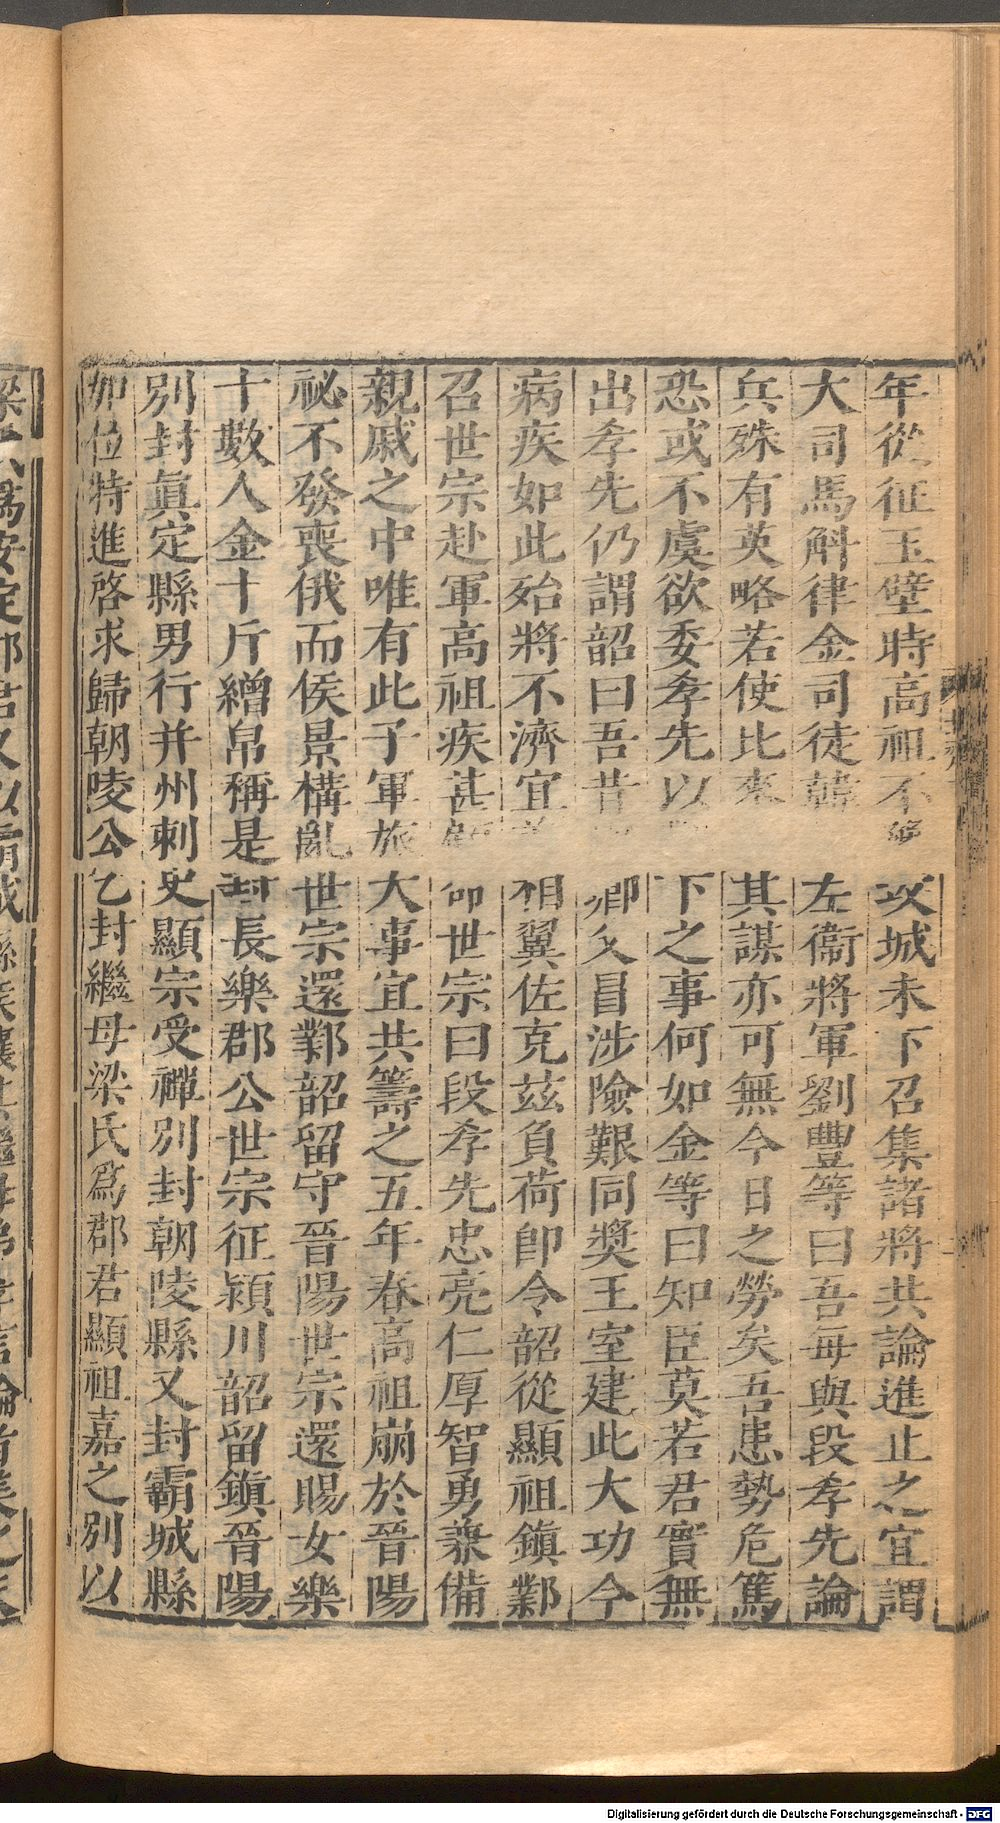 年從征玉壁時高祖不豫攻城未下召集諸將共論進止之宜謂
大司馬斛律金司徒韓左衞將軍劉豐等曰吾每與段孝先論
兵殊有英略若使比來其謀亦可無今日之勞矣吾患勢危篤
恐或不虞欲委孝先以下之事何如金等曰知臣莫若君實無
出孝先仍謂韶曰吾昔卿父冒涉險艱同奬王室建此大功今
病疾如此殆將不濟宜相翼佐克玆負荷卽令韶從顯祖鎭鄴
召世宗赴軍高祖疾甚命世宗曰段孝先忠亮仁厚智勇兼備
親戚之中唯有此子軍旅大事宜共籌之五年春高祖崩於晉陽
祕不發喪俄而侯景構亂世宗還鄴韶留守晉陽世宗還賜女樂
十數人金十斤繒帛稱是封長樂郡公世宗征潁川韶留鎭晉陽
別封眞定縣男行并州刺史顯宗受禪別封朝陵縣又封霸城縣
加位特進啓求歸朝陵公乞封繼母梁氏爲郡君顯祖嘉之別以
梁氏爲安定郡君又以霸城縣侯讓其繼母弟孝言論者美之天
Digitalisierung gefördert durch die Deutsche Forschungsgemeinschaft - DFG